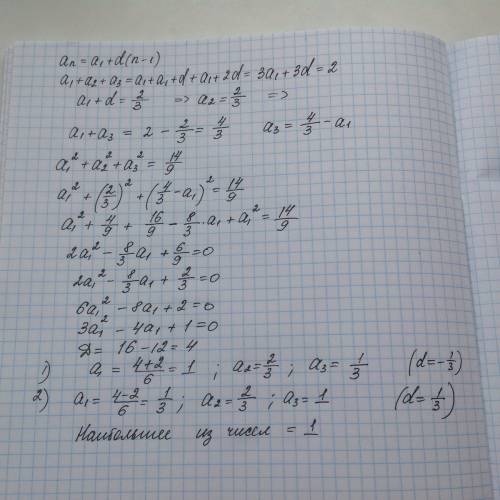 aₙ = a₁ + d(n-1)
a₁ + a₂ + a₃ = a₁ + a₁ + d + a₁ + 2d = 3a₁ + 3d = 2
a₁ + d = 2/3 => a₂ = 2/3 =>
a₁ + a₃ = 2 - 2/3 = 4/3 a₃ = 4/3 - a₁
a₁² + a₂² + a₃² = 14/9
a₁² + (2/3)² + (4/3 - a₁)² = 14/9
a₁² + 4/9 + 16/9 - 8/3 · a₁ + a₁² = 14/9
2a₁² - 8/3 a₁ + 6/9 = 0
2a₁² - 8/3 a₁ + 2/3 = 0
6a₁² - 8a₁ + 2 = 0
3a₁² - 4a₁ + 1 = 0
D = 16 - 12 = 4
1) a₁ = (4+2)/6 = 1 ; a₂ = 2/3 ; a₃ = 1/3 (d = -1/3)
2) a₁ = (4-2)/6 = 1/3 ; a₂ = 2/3 ; a₃ = 1 (d = 1/3)
Наибольшее из чисел = 1